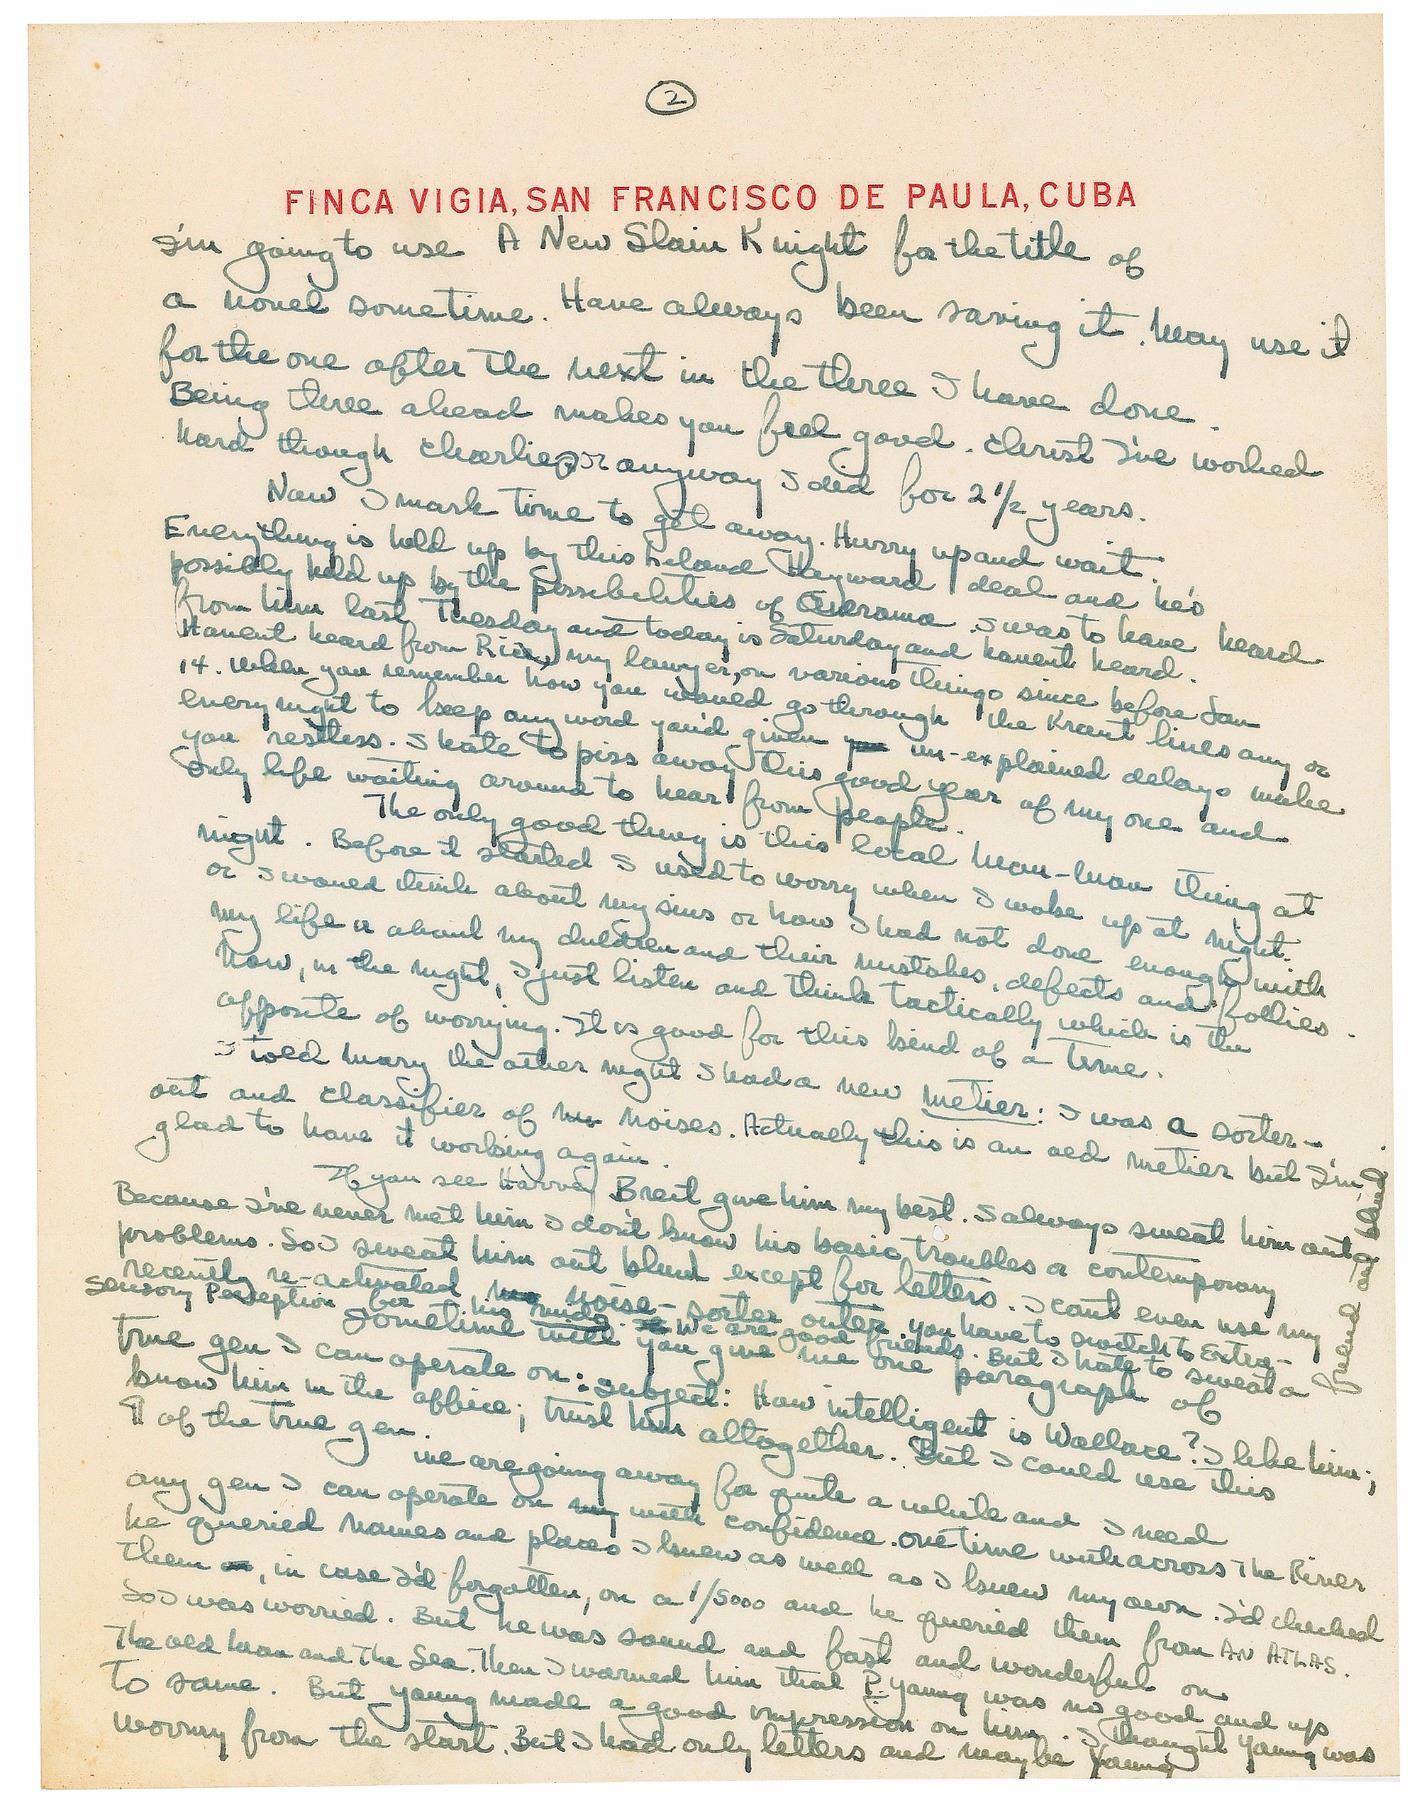 2
FINCA VIGIA, SAN FRANCISCO DE PAULA, CUBA
I'm going to use A New Slain Knight for the title of
a novel sometime. Have always been saving it. May use it
for the one after the next in the three I have done.
Being three ahead makes you feel good. Christ I've worked
hard though Charlie, or anyway I did for 2 1/2 years.
Now I mark time to get away. Hurry up and wait.
Everything is held up by this Leland Hayward deal and he's
possibly held up by the possibilities of Cinerama. I was to have heard
from him last Tuesday and today is Saturday and havent heard.
Havent heard from Rice, my lawyer, on various things since before Jan
14. When you remember how you would go through the Kraut lines any or
every night to keep any word you'd given un-explained delays make
you restless. I hate to piss away this good year of my one and
only life waiting around to hear from people.
The only good thing is this local Mau-Mau thing at
night. Before it started I used to worry when I woke up at night.
or I would think about my sins or how I had not done enough with
my life or about my children and their mistakes, defects and follies.
Now, in the night, I just listen and think tactically which is the
opposite of worrying. It is good for this kind of a time.
I told Mary the other night I had a new metier: I was a sorter-
out and classifier of noises. Actually this is an old metier but I'm
glad to have it working again.
If you see Harvey Breit give him my best. I always sweat him out
Because I've never met him I don't know his basic troubles or contemporary
problems. So I sweat him out blind except for letters. I cant even use my
recently re-activated noise-sorter outer. You have to switch to Extra-
Sensory Perseption for his mind. We are good friends. But I hate to sweat a
friend out blind.
Sometime will you give me one paragraph of
true gen I can operate on: Subject: How intelligent is Wallace? I like him;
know him in the office; trust him altogether. But I could use this
¶ of the true gen.
We are going away for quite a while and I need
any gen I can operate on with confidence. One time with across The River
he queried names and places I knew as well as I knew my own. I'd checked
them, in case I'd forgotten, on a 1/5000 and he queried them from AN ATLAS.
So I was worried. But he was sound and fast and wonderful on
The Old Man and The Sea. Then I warned him that P. Young was no good and up
to same. But Young made a good impression on him. I thought Young was
wormy from the start. But I had only letters and maybe Young